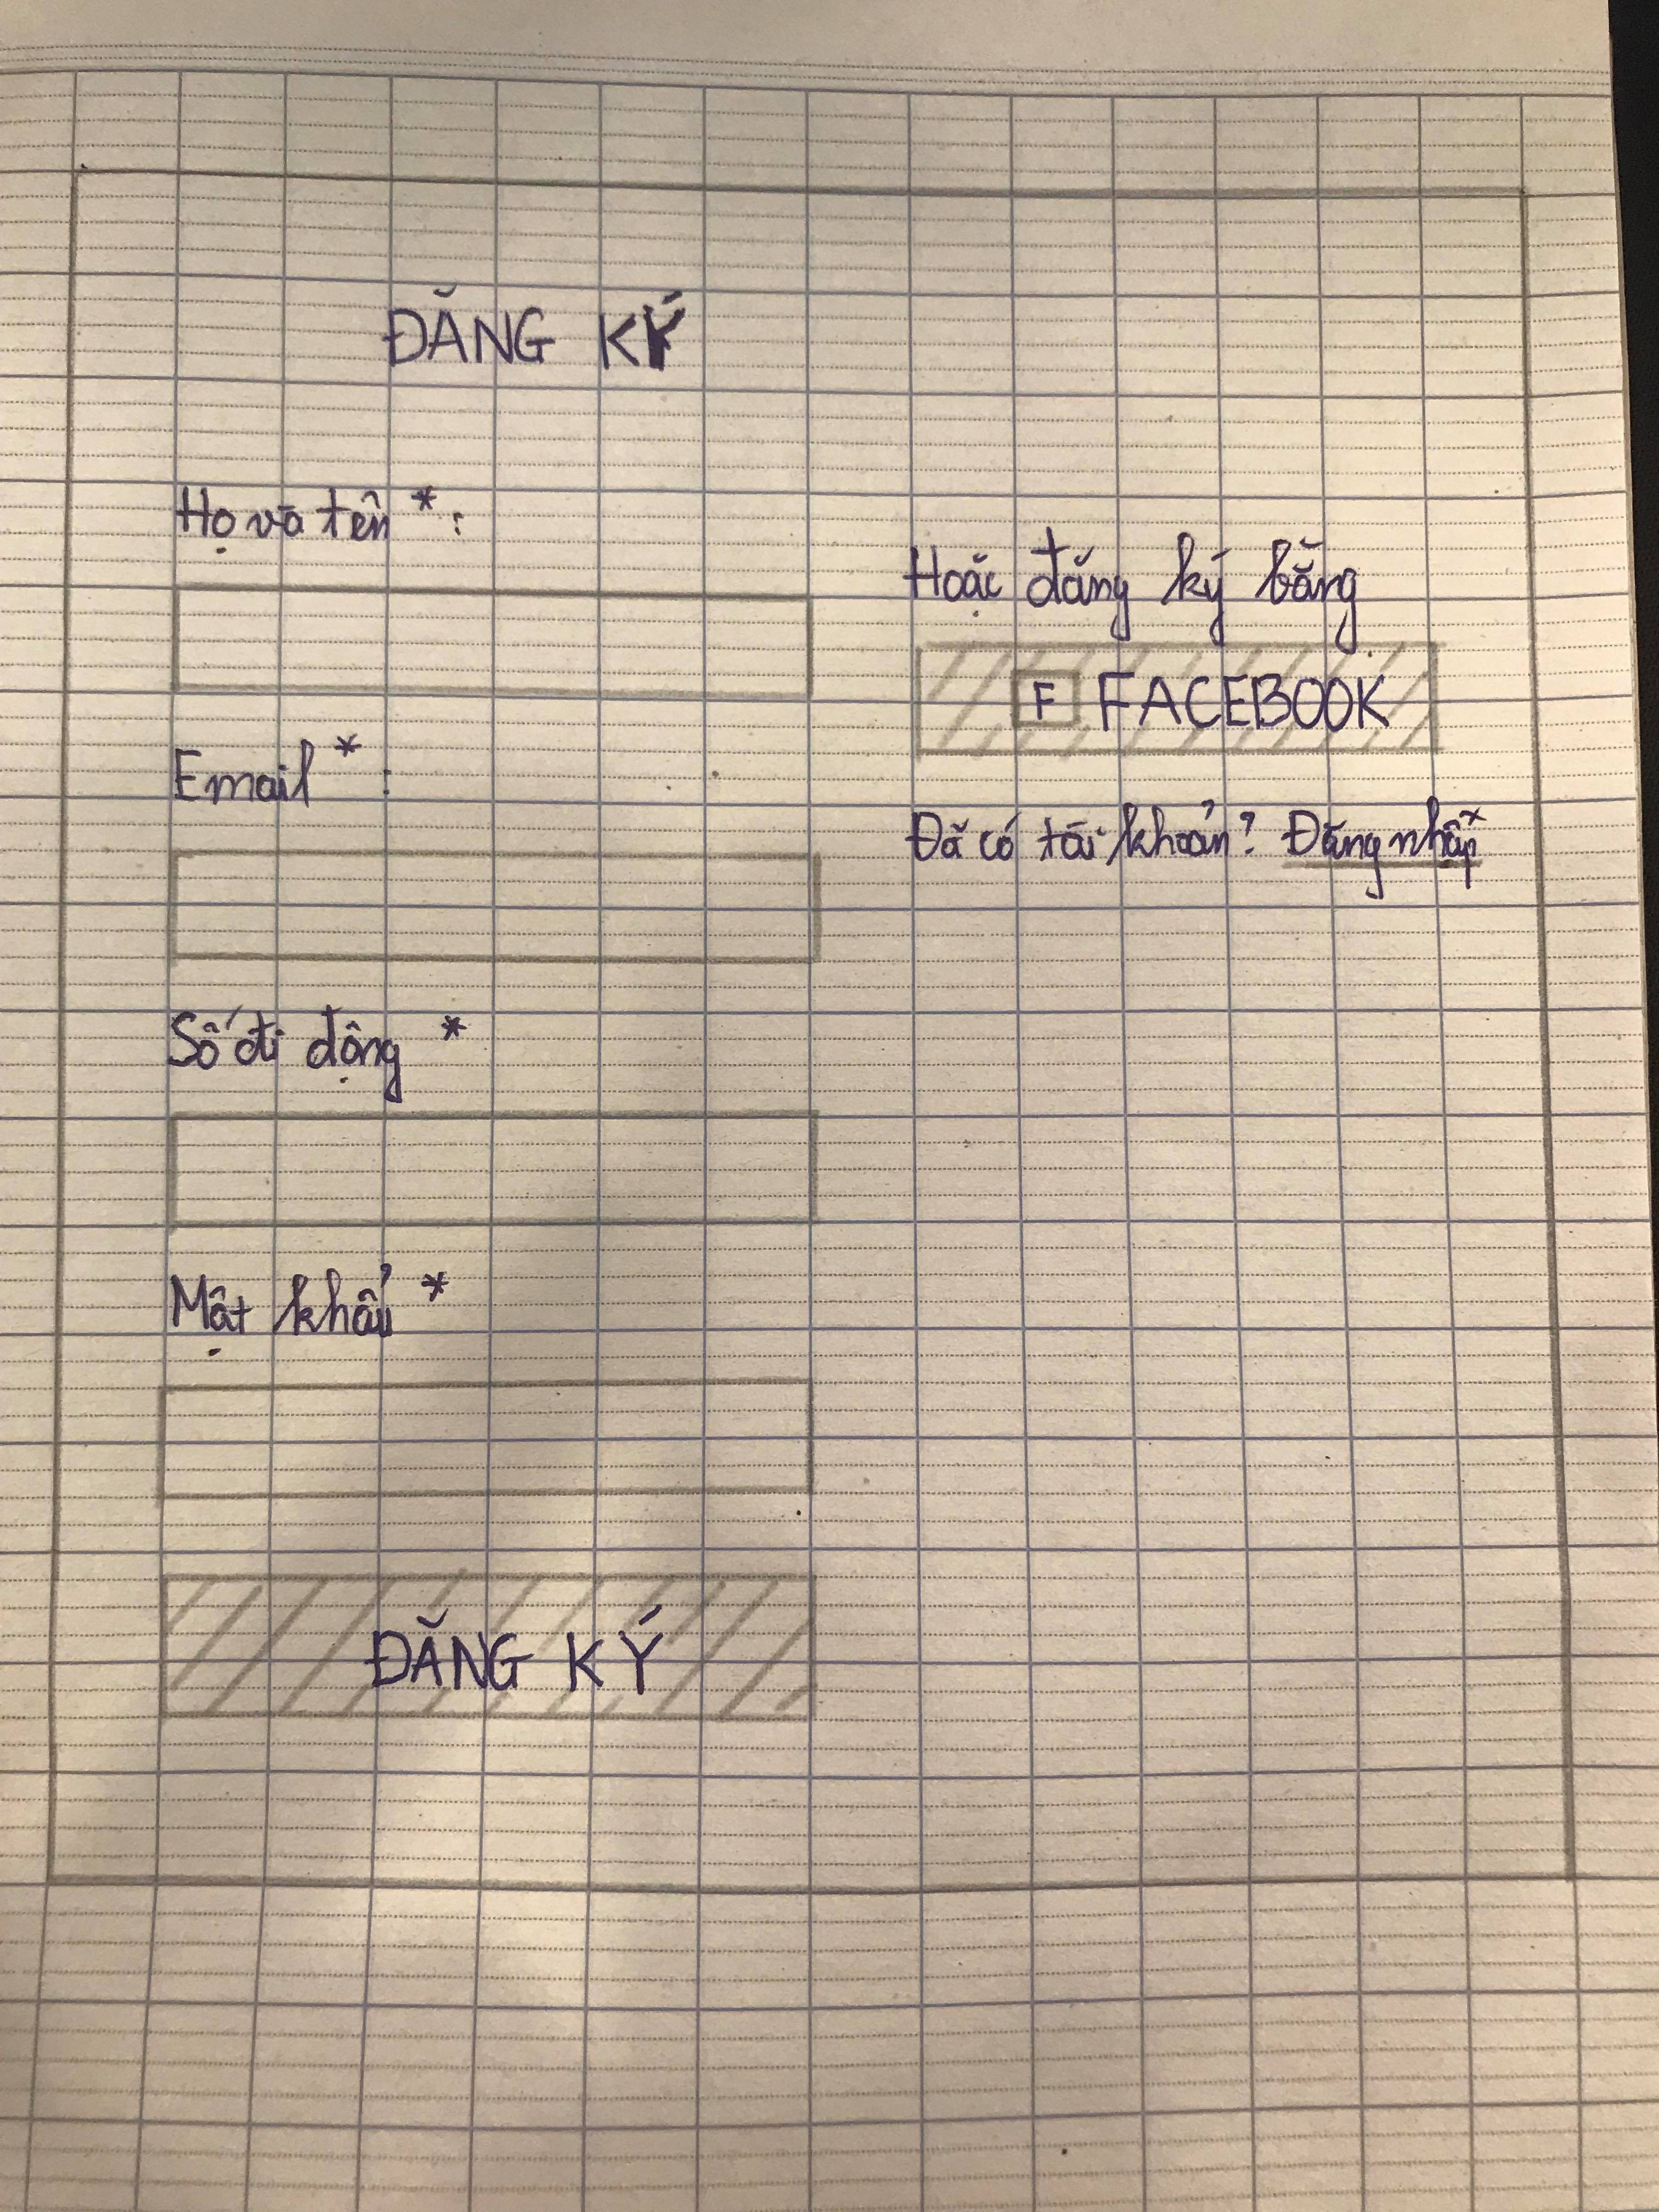 ĐĂNG KÝ
Họ và tên *:
Email * :
Số đi động *
Mật khẩu *
ĐĂNG KÝ
Hoặc đăng ký bằng
F FACEBOOK
Đã có tài khoản? Đăng nhập